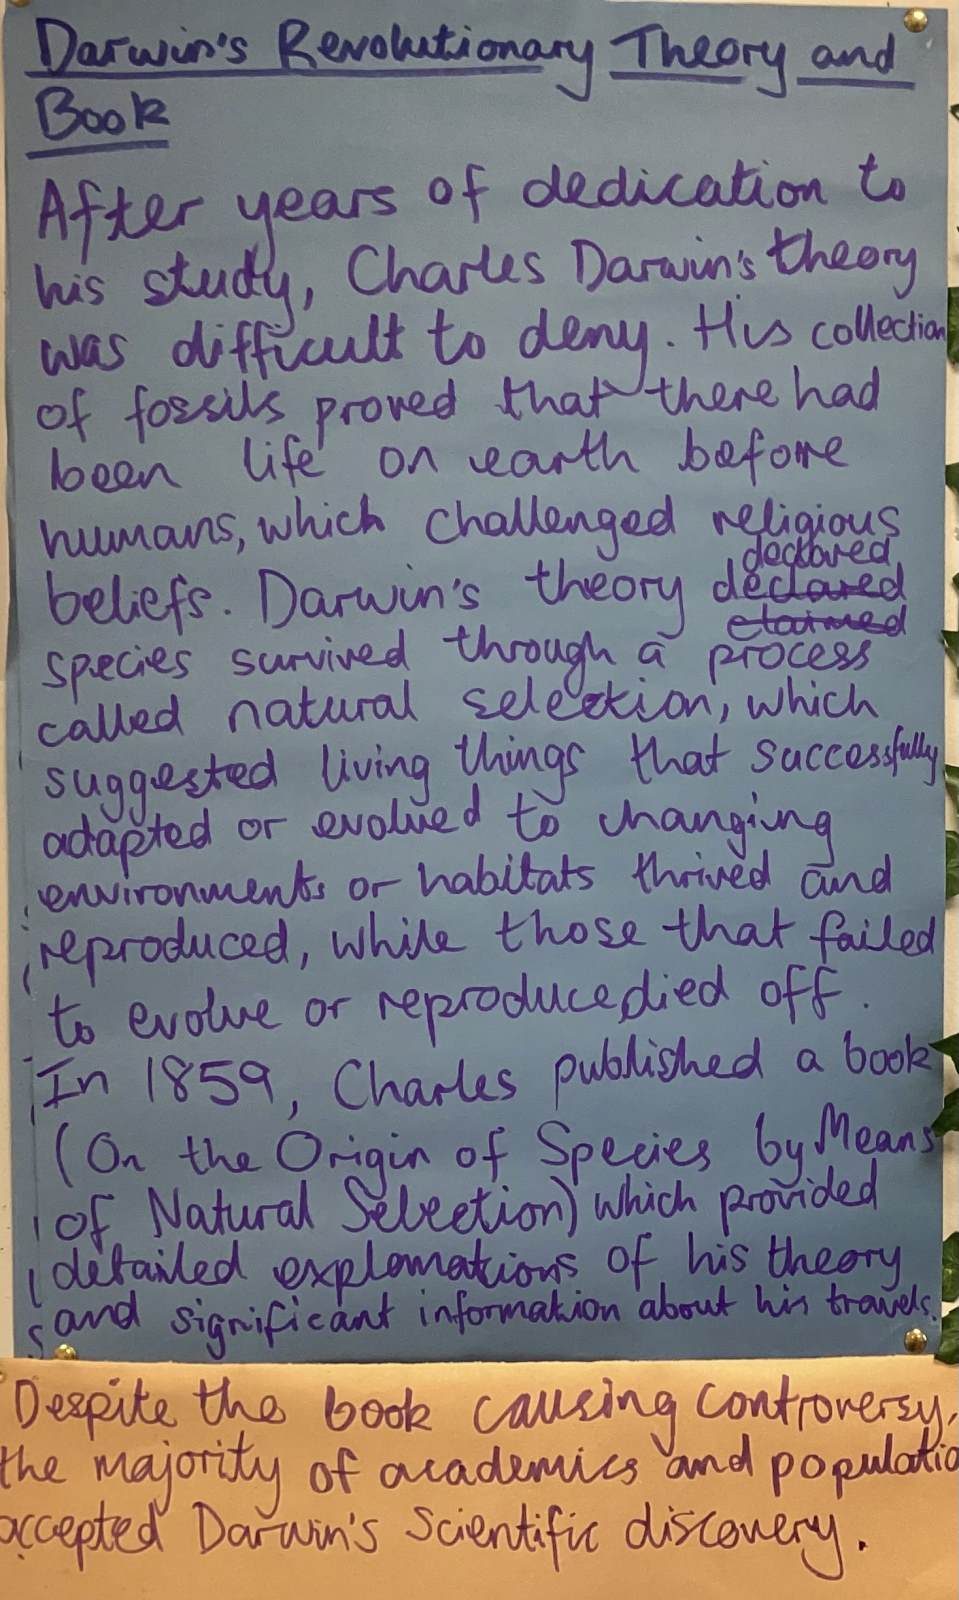 Darwin's Revolutionary Theory and
Book
After years of dedication to
his study, Charles Darwin's theory
was difficult to deny. His collection
of fossils proved that there had
been life on earth before
humans, which challenged religious
declared
beliefs. Darwin's theory declared
claimed
species survived through a process
called natural selection, which
suggested living things that successfully
adapted or evolved to changing
environments or habitats thrived and
reproduced, while those that failed
to evolve or reproduce, died off.
In 1859, Charles published a book
(On the Origin of Species by Means
of Natural Selection) which provided
detailed explamations of his theory
and significant information about his travels.
Despite the book causing controversy,
the majority of academics and populatio
accepted Darwin's Scientific discovery.